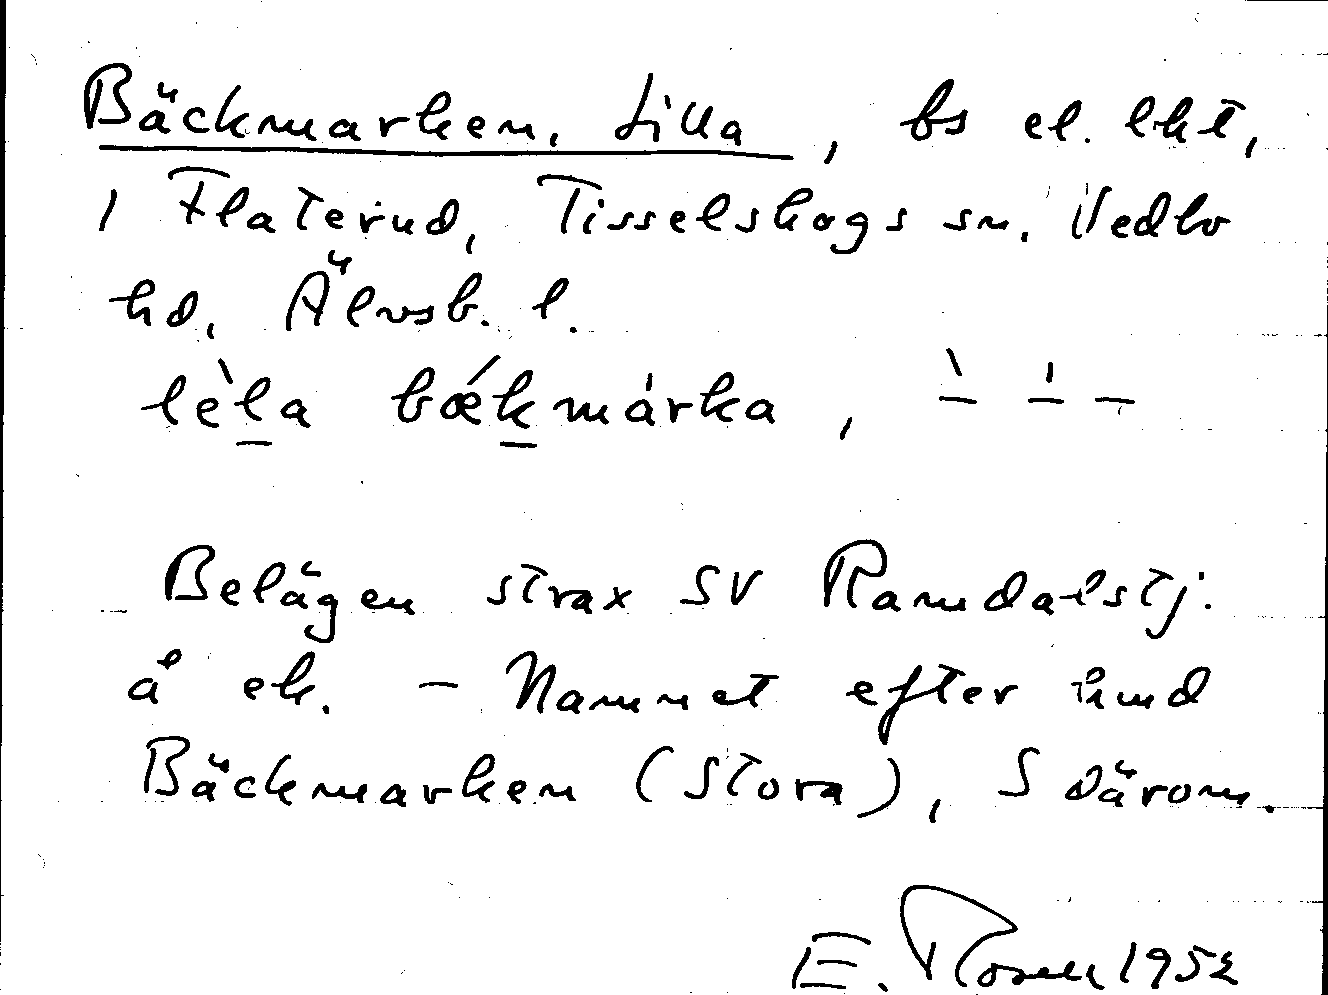 Bäckmarken, Lilla, bs el. lht,
i Flaterud, Tisselskogs sn. Vedbo
hd, Älvsb. l.
lèla bǽkmàrka,
Belägen strax SV Ramdalstj.
å ek. – Namnet efter hmd
Bäckmarken (Stora), S därom.
E. Rosell 1952